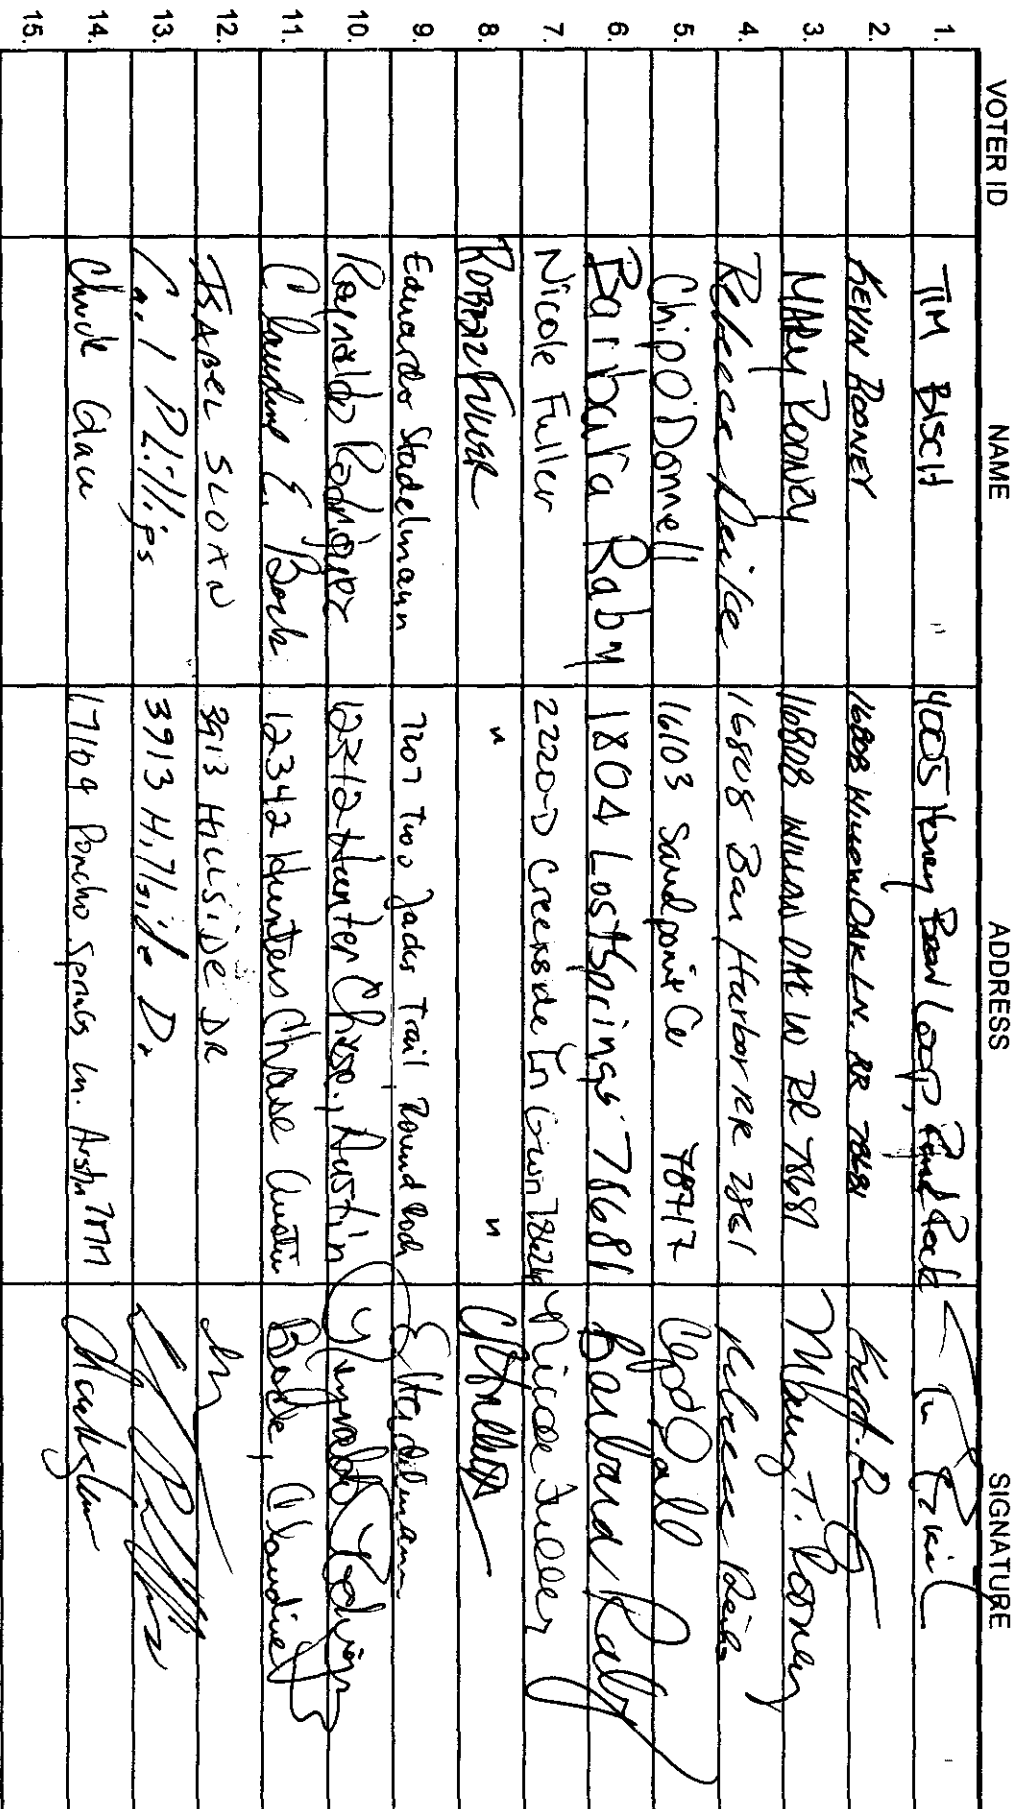 VOTER ID NAME ADDRESS SIGNATURE
1. TIM BISCH 4005 Honey Bear Loop, Round Rock
2. KEVIN ROONEY 16808 WILLOW OAK LN. RR 78681
3. MARY ROONEY 16808 WILLOW OAK LN RR 78681
4. Rebecca 16808 Bar Harbor RR 7861 Rebecca
5. Chip O'Donnell 16103 Sandpoint Cv 78717
6. Barbara Raby 1804 Lost Springs 78681 Barbara Raby
7. Nicole Fuller 2220-D Creekside Ln 78626 Nicole Fuller
8. ROBERT FULLER " "
9. Eduardo Stadelmann 7207 Two Jacks Trail Round Rock E Stadelmann
10. Reynaldo Rodriguez 12312 Hunter Chase, Austin Reynaldo Rodriguez
11. Claudine E. Bork 12342 Hunters Chase Austin Claudine
12. ISABEL SLOAN 3913 HILLSIDE DR
13. Phillips 3913 Hillside Dr
14. Chuck 17109 Poncho Springs Ln. Austin
15.